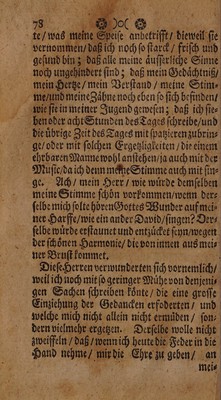 78
te/ was meine Speise anbetrifft/ dieweil sie
vernommen/ daß ich noch so starck/ frisch und
gesund bin; daß alle meine äusserliche Sinne
noch ungehindert sind; daß mein Gedächtniß/
mein Hertze/ mein Verstand/ meine Stim-
me/ und meine Zähne noch eben so sich befinden/
wie sie in meiner Jugend gewesen; daß ich sie-
ben oder acht Stunden des Tages schreibe/ und
die übrige Zeit des Tages mit spatzieren zubrin-
ge/ oder mit solchen Ergetzligkeiten/ die einem
ehrbaren Manne wohl anstehen/ ja auch mit der
Music/ da ich denn meine Stimme auch mit sin-
ge. Ach/ mein Herr/ wie würde demselben
meine Stimme schön vorkommen/ wenn der-
selbe mich solte hören Gottes Wunder auf mei-
ner Harffe/ wie ein ander David/ singen? Der-
selbe würde erstaunet und entzücket seyn/ wegen
der schönen Harmonie/ die von innen aus mei-
ner Brust kommet.
Diese Herren verwunderten sich vornemlich/
weil ich noch mit so geringer Mühe von denjeni-
gen Sachen schreiben könte/ die eine grosse
Einziehung der Gedancken erfoderten/ und
welche mich nicht allein nicht ermüden/ son-
dern vielmehr ergetzen. Derselbe wolle nicht
zweiffeln/ daß/ wenn ich heute die Feder in die
Hand nehme/ mir die Ehre zu geben/ an
mei-